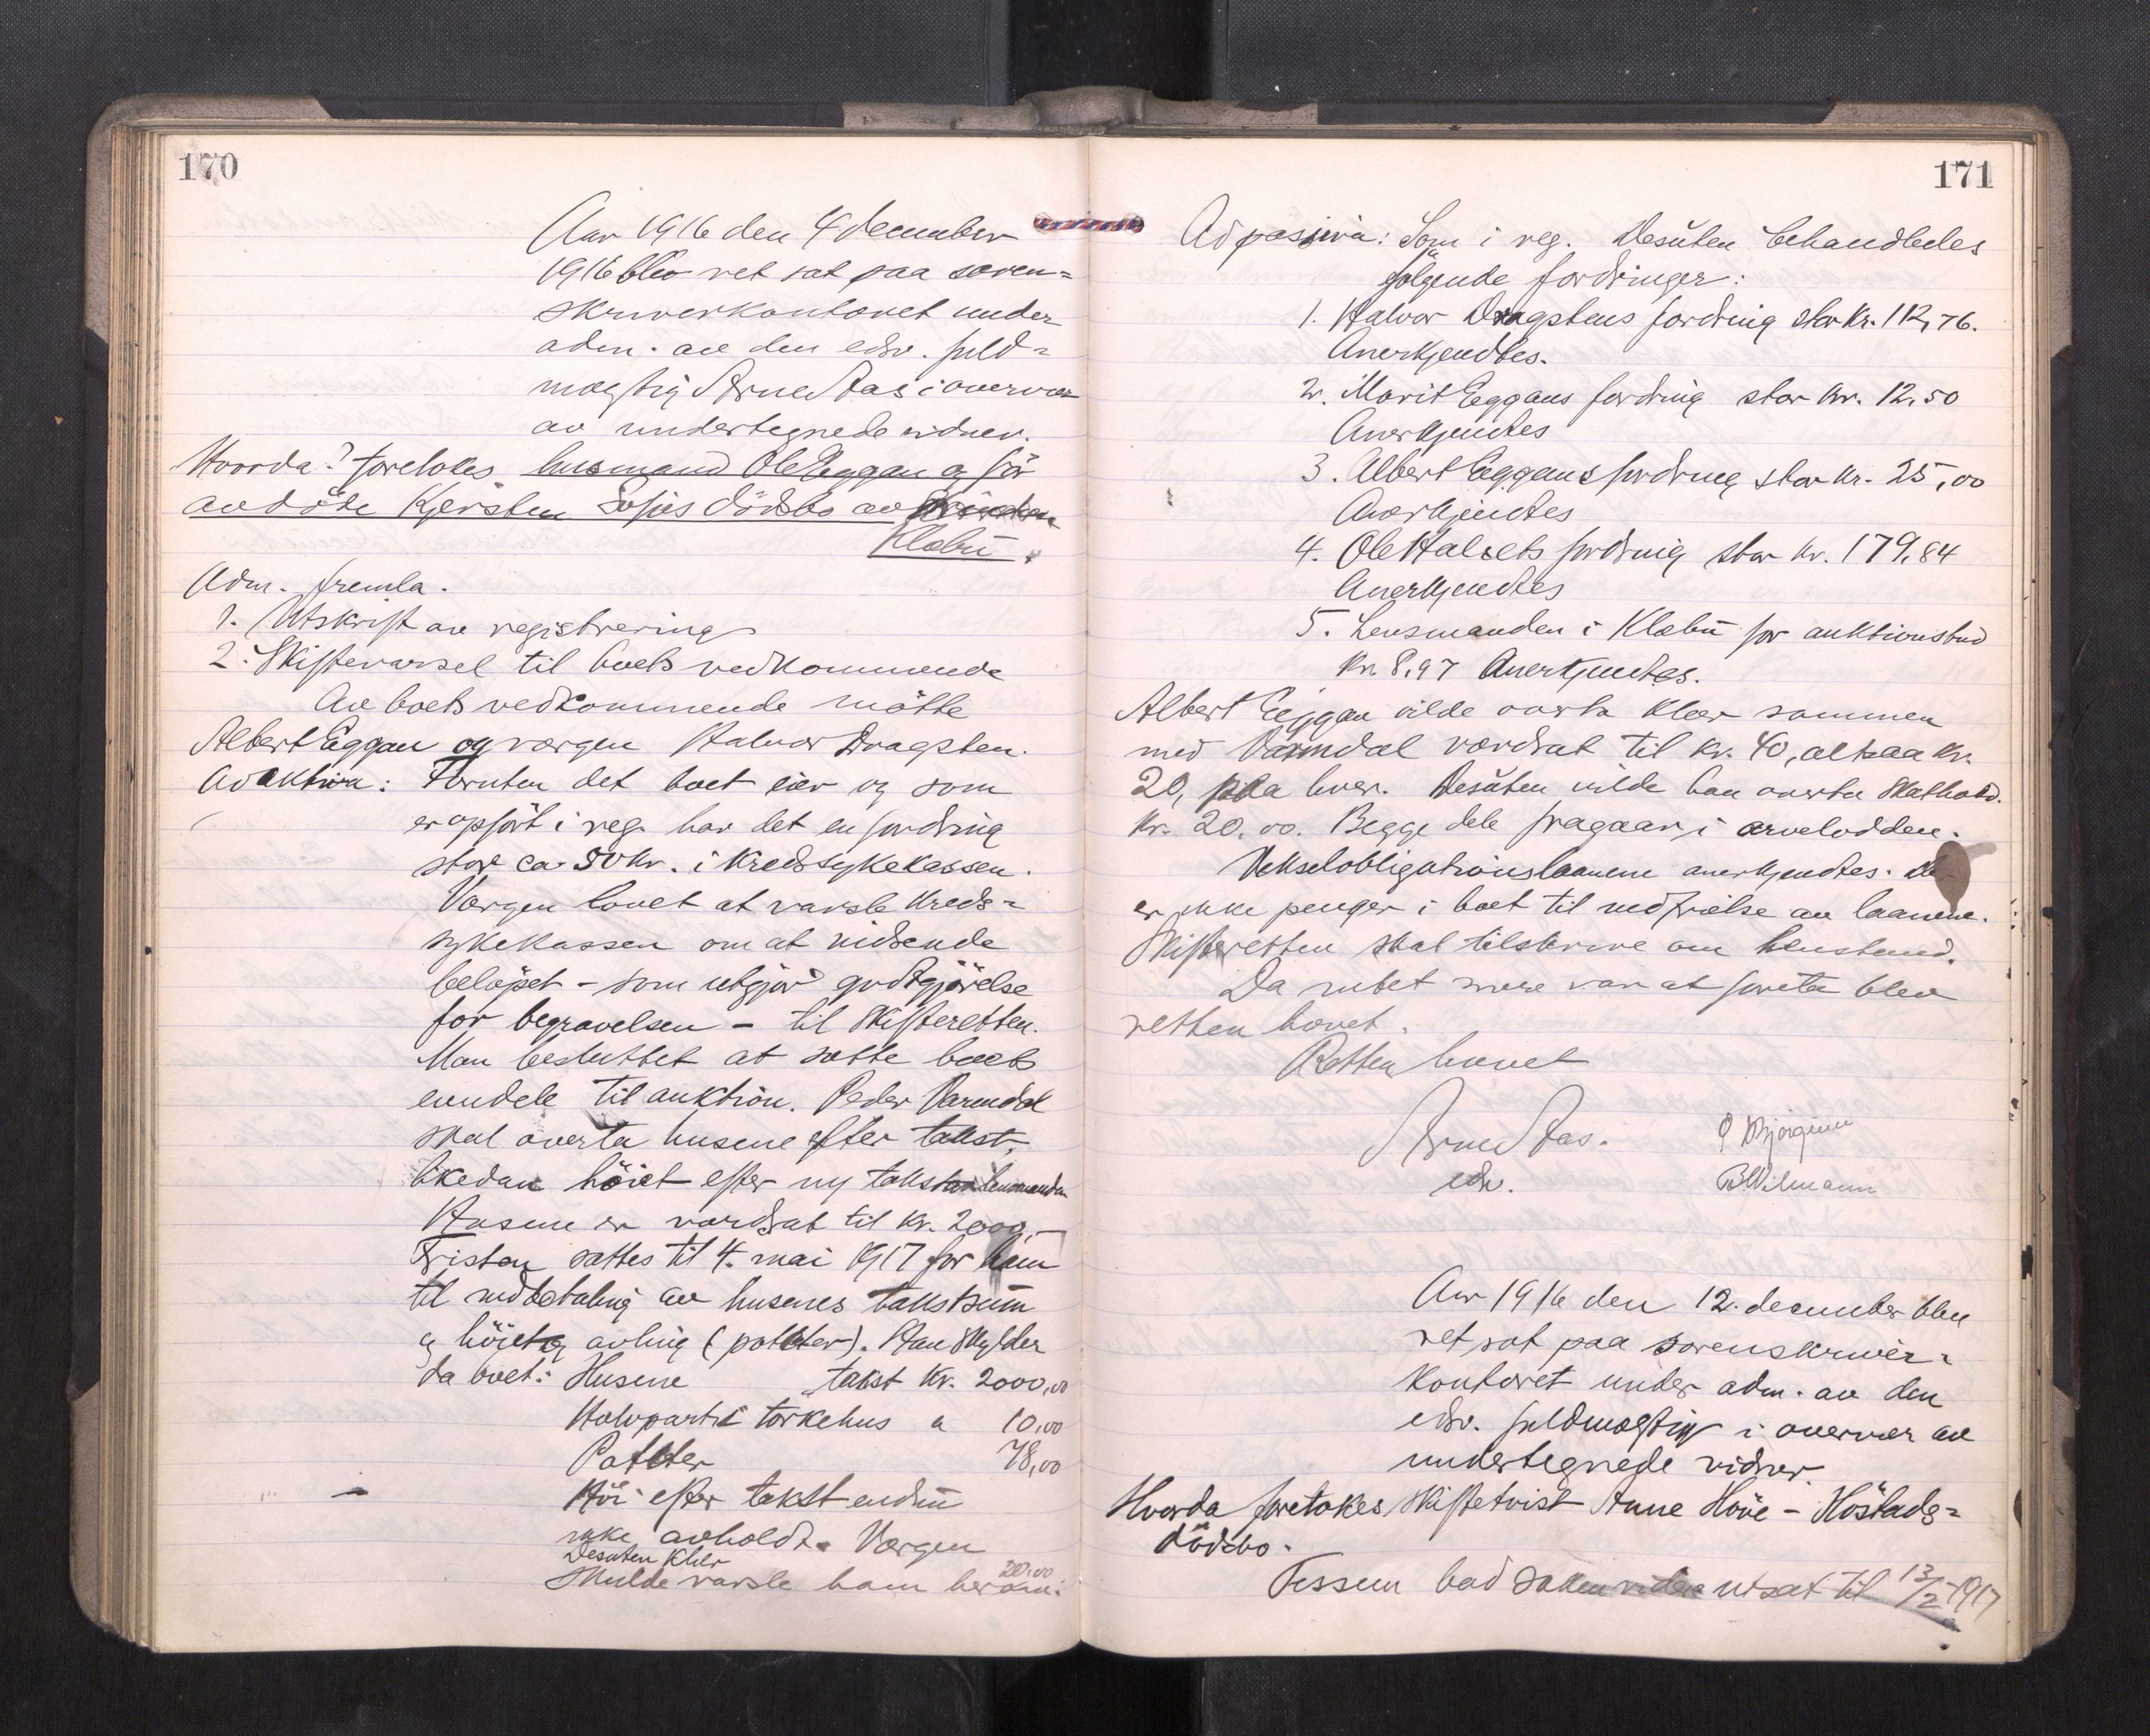 170
Aar 1916 den 4 december
1916 blev ret sat paa soren=
skriverkontoret under
adm. av den edsv. fuld=
mægtig Arne Aas i overvær
av undertegnede vidner.
Hvorda: foretokes husmand Ole Eggan og før
avdöde Kjersten Sofies dödsbo av
Klæbu.
Adm. fremla.
1. Utskrift av registrering
2. Skiftevarsel til boets vedkommende
Av boets vedkommende mötte
Albert Eggan og vergen Halvor Dragsten.
Ad aktiva: Foruten det boet eier og som
er opfört i reg. har det en fordring
stor ca 50 kr. i Kredssykekassen.
Vergen lovet at varsle Kreds=
sykekassen om at indsende
belöpet - som utgjör godtgjörelse
for begravelsen - til Skifteretten.
Man besluttet at sætte boets
eiendele til auktion. Peder Varmdal
skal overta husene efter takst,
likedan höiet efter ny takst lensmanden
Husene er værdsat til kr. 2000,-
Fristen sattes til 4. mai 1917 for ham
til indbetaling av husenes takstsum
og höiet og avling (poteter). Han skylder
da boet: Husene takst kr. 2000,00
Halvparti törkehus a 10,00
Poteter 78,00
Höi efter takst endnu
ikke avholdt. Vergen
Desuten klær 20,00
skulde varsle ham herom.
171
Ad passiva: Som i reg. Desuten behandledes
fölgende fordringer:
1. Halvor Dragstens fordring stor kr. 112,76.
Anerkjendtes.
2. Marit Eggans fordring stor kr. 12,50
Anerkjendtes
3. Albert Eggans fordring stor kr. 25,00
Anerkjendtes
4. Ole Halsets fordring stor kr. 179,84
Anerkjendtes
5. Lensmanden i Klæbu for auktionsbud
kr. 8,97 Anerkjendtes.
Albert Eggan vilde overta klær sammen
med Varmdal værdsat til kr. 40, altsaa kr.
20, paa hver. Desuten vilde han overta Skathold.
kr. 20,00. Begge dele fragaar i arvelodden.
Vekselobligationslaanene anerkjendtes. De
er ikke penger i boet til indfrielse av laanene.
Skifteretten skal tilskrive om henstand.
Da intet mere var at foreta blev
retten hævet.
Retten hævet
Arne Aas.
edsv.
O Bjørgum
B. Wilmann
Aar 1916 den 12. december blev
ret sat paa sorenskriver=
kontoret under adm. av den
edsv. fuldmægtig i overvær av
undertegnede vidner.
Hvorda foretokes Skiftetvist Anne Höve - Höstads=
dödsbo.
Tessem bad saken videre utsat til 13/2 1917